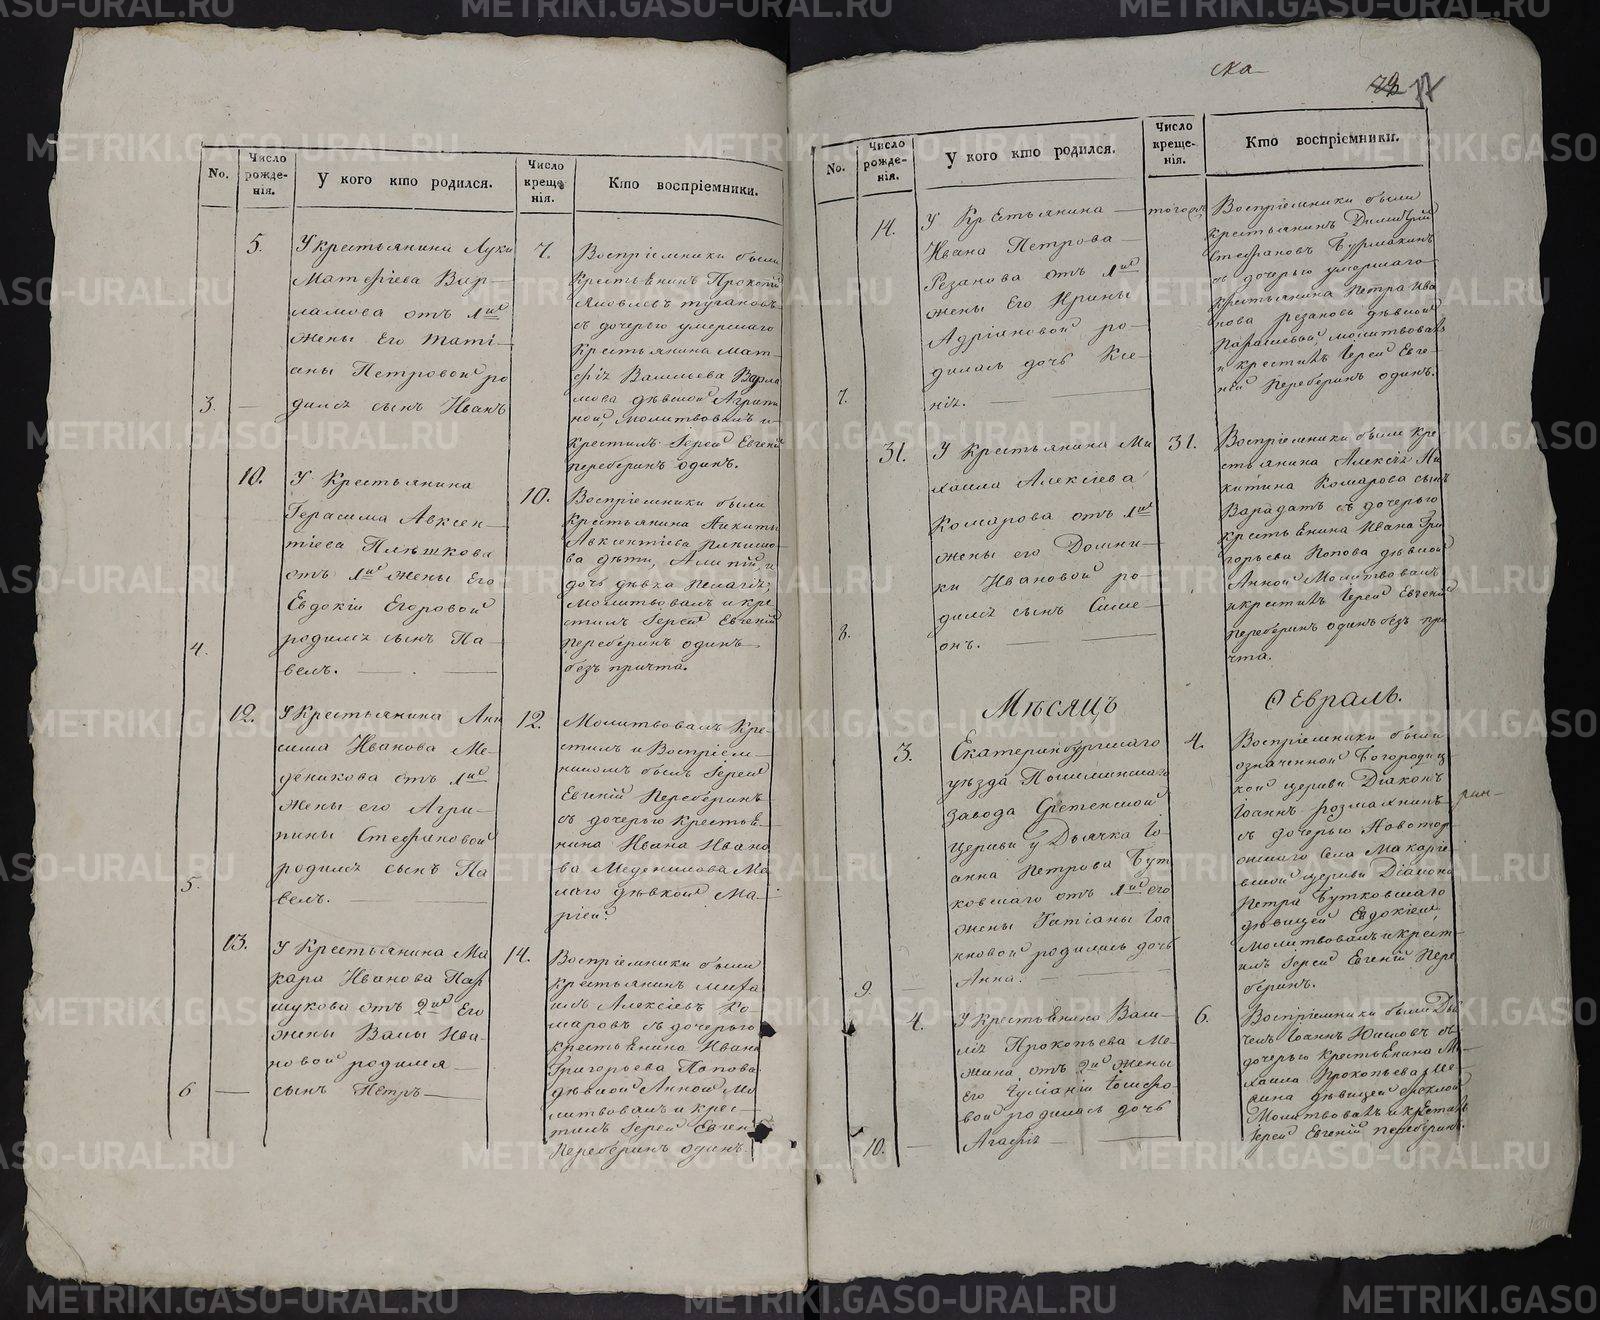 ска
77
No.
Число рожде-нія.
У кого кто родился.
Число креще-нія.
Кто воспріемники.
3.
5.
У крестьянина Луки
Матфіева Вар-
ламова отъ 1ой
жены Его Таті-
аны Петровой ро
дился сынъ Иванъ
7.
Воспріемники были
Крестьянинъ Прокопій
Яковлевъ
съ дочерью умершаго
Крестьянина Мат-
фія Васильева Варла
мова дѣвкой Агрипи
ной, молитвовалъ и
крестилъ Іерей Евгеній
Переберинъ одинъ.
4.
10.
У Крестьянина
Герасима Авксен-
тіева Плѣшкова
отъ 1ой жены Его
Евдокіи Егоровой
родился сынъ Па-
велъ.
10.
Воспріемники были
крестьянина Никиты
Авксентіева Плѣшко-
ва дѣти, Алипій, и
дочь дѣвка Пелагія;
Молитвовалъ и кре-
стилъ Іерей Евгеній
Переберинъ одинъ
безъ причта.
5.
12.
У Крестьянина Ани
сима Иванова Ме-
деникова отъ 1ой
жены его Агри-
пины Стефановой
родился сынъ Па-
велъ.
12.
Молитвовалъ Кре-
стилъ и Воспріем-
никомъ былъ Іерей
Евгеній Переберинъ
съ дочерью крестья-
нина Ивана Ивано
ва Меденикова Ма
лаго дѣвкой Ма-
ріей.
6
13.
У Крестьянина Ма
кара Иванова Пар
шукова отъ 2ой Его
жены Вассы Ива-
новой родился
сынъ Петръ
14.
Воспріемники были
крестьянинъ Миха
илъ Алексіевъ Ко-
маровъ съ дочерью
крестьянина Ивана
Григорьева Попова
дѣвкой Анной Мо
литвовалъ и крес-
тилъ Іерей Евгеній
Переберинъ одинъ.
No.
Число рожде-нія.
У кого кто родился.
Число креще-нія.
Кто воспріемники.
7.
14.
У Крестьянина
Ивана Петрова
Резанова отъ 1ой
жены Его Ирины
Адріановой ро-
дилась дочь Ксе-
нія.
тогожъ
Воспріемники были
крестьянинъ Димитрій
Стефановъ Бурмакинъ
съ дочерью умершаго
крестьянина Петра Ива
нова Резанова дѣвкой
Параскевой, молитвовалъ
и крестилъ Іерей Евге-
ній Переберинъ одинъ.
8.
31.
У Крестьянина Ми
хаила Алексіева
Комарова отъ 1ой
жены его Домни-
ки Ивановой ро-
дился сынъ Симе-
онъ.
31.
Воспріемники были кре
стьянина Алексія Ни
китина Комарова сынъ
Варадатъ съ дочерью
крестьянина Ивана Гри
горьева Попова дѣвкой
Анной Молитвовалъ
и крестилъ Іерей Евгеній
Переберинъ одинъ безъ при
чта.
Мѣсяцъ
Февраль.
9
3.
Екатеринбургскаго
уѣзда Пышминскаго
завода Срѣтенской
церкви у Дьячка Іо
анна Петрова Бут
ковскаго отъ 1ой его
жены Татіаны Іоа
нновой родилась дочь
Анна.
4.
Воспріемники были
означенной Богородиц
кой церкви Діаконъ
Іоаннъ Розмахнинъ
съ дочерью Новотор
жскаго Села Макарье
вской церкви Діакона
Петра Бутковскаго
дѣвицей Евдокіей,
Молитвовалъ и крест-
илъ Іерей Евгеній Пере
беринъ.
10.
4.
У Крестьянина Васи-
лія Прокопьева Ме-
жина отъ 2ой жены
его Іуліаніи Іосифо-
вой родилась дочь
Агафія
6.
Воспріемники были Дья
чекъ Іоаннъ Юшковъ съ
дочерью крестьянина Ми-
хаила Прокопьева Ме-
жина дѣвицей Феклой
Молитвовалъ и крестилъ
Іерей Евгеній Переберинъ.
METRIKI.GASO-URAL.RU